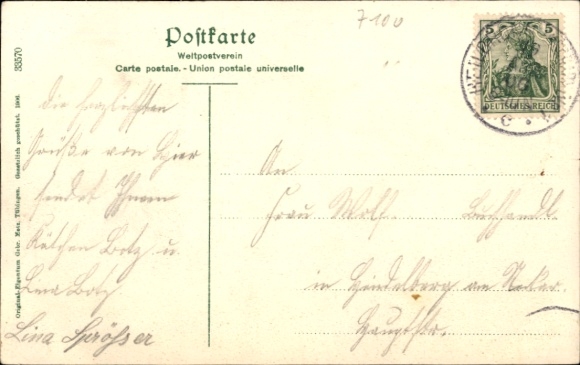 7100
Postkarte
Weltpostverein
Carte postale. - Union postale universelle
5 5
DEUTSCHES REICH
33570
Original-Eigentum Gebr. Metz, Tübingen. Gesetzlich geschützt. 1906.
die herzlichsten
Grüße von hier
sendet Ihnen
Kätchen Botz u.
Lina Botz.
Lina Sprößer
An
Frau Wolf. Buchhandl.
in Heidelberg am Neckar.
Hauptstr.